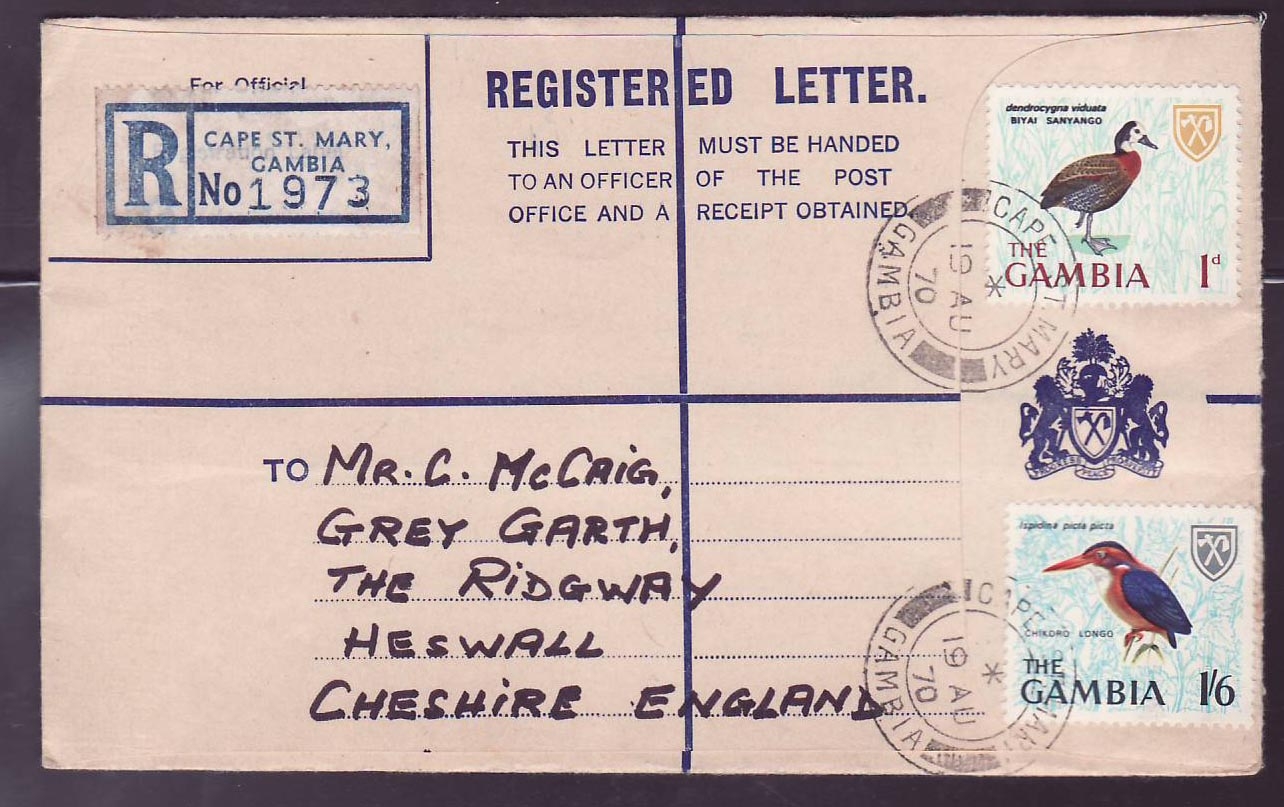 For Official
R
CAPE ST. MARY,
GAMBIA
No 1973
REGISTERED LETTER.
THIS LETTER MUST BE HANDED
TO AN OFFICER OF THE POST
OFFICE AND A RECEIPT OBTAINED
dendrocygna viduata
BIYAI SANYANGO
THE
GAMBIA 1d
CAPE ST. MARY
19 AU
70
GAMBIA
TO MR. C. McCAIG,
GREY GARTH,
THE RIDGWAY
HESWALL
CHESHIRE ENGLAND
ispidina picta picta
CHIKORO LONGO
THE
GAMBIA 1/6
CAPE MARY
19 AU
70
GAMBIA